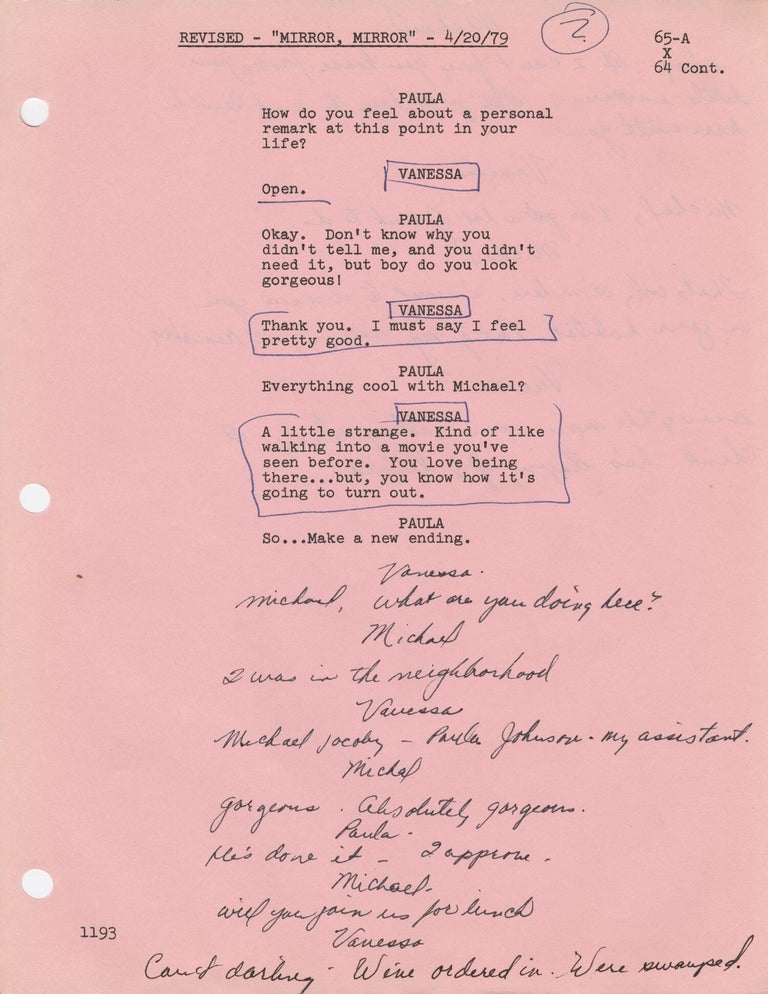 REVISED - "MIRROR, MIRROR" - 4/20/79
2
65-A
X
64 Cont.
PAULA
How do you feel about a personal
remark at this point in your
life?
VANESSA
Open.
PAULA
Okay.  Don't know why you
didn't tell me, and you didn't
need it, but boy do you look
gorgeous!
VANESSA
Thank you.  I must say I feel
pretty good.
PAULA
Everything cool with Michael?
VANESSA
A little strange.  Kind of like
walking into a movie you've
seen before.  You love being
there...but, you know how it's
going to turn out.
PAULA
So...Make a new ending.
Vanessa.
Michael, what are you doing here?
Michael
I was in the neighborhood
Vanessa
Michael Jacoby - Paula Johnson - my assistant.
Michal
gorgeous. Absolutely gorgeous.
Paula.
He's done it - I approve.
Michael.
will you join us for lunch
Vanessa
Can't darling. We've ordered in. We're swamped.
1193